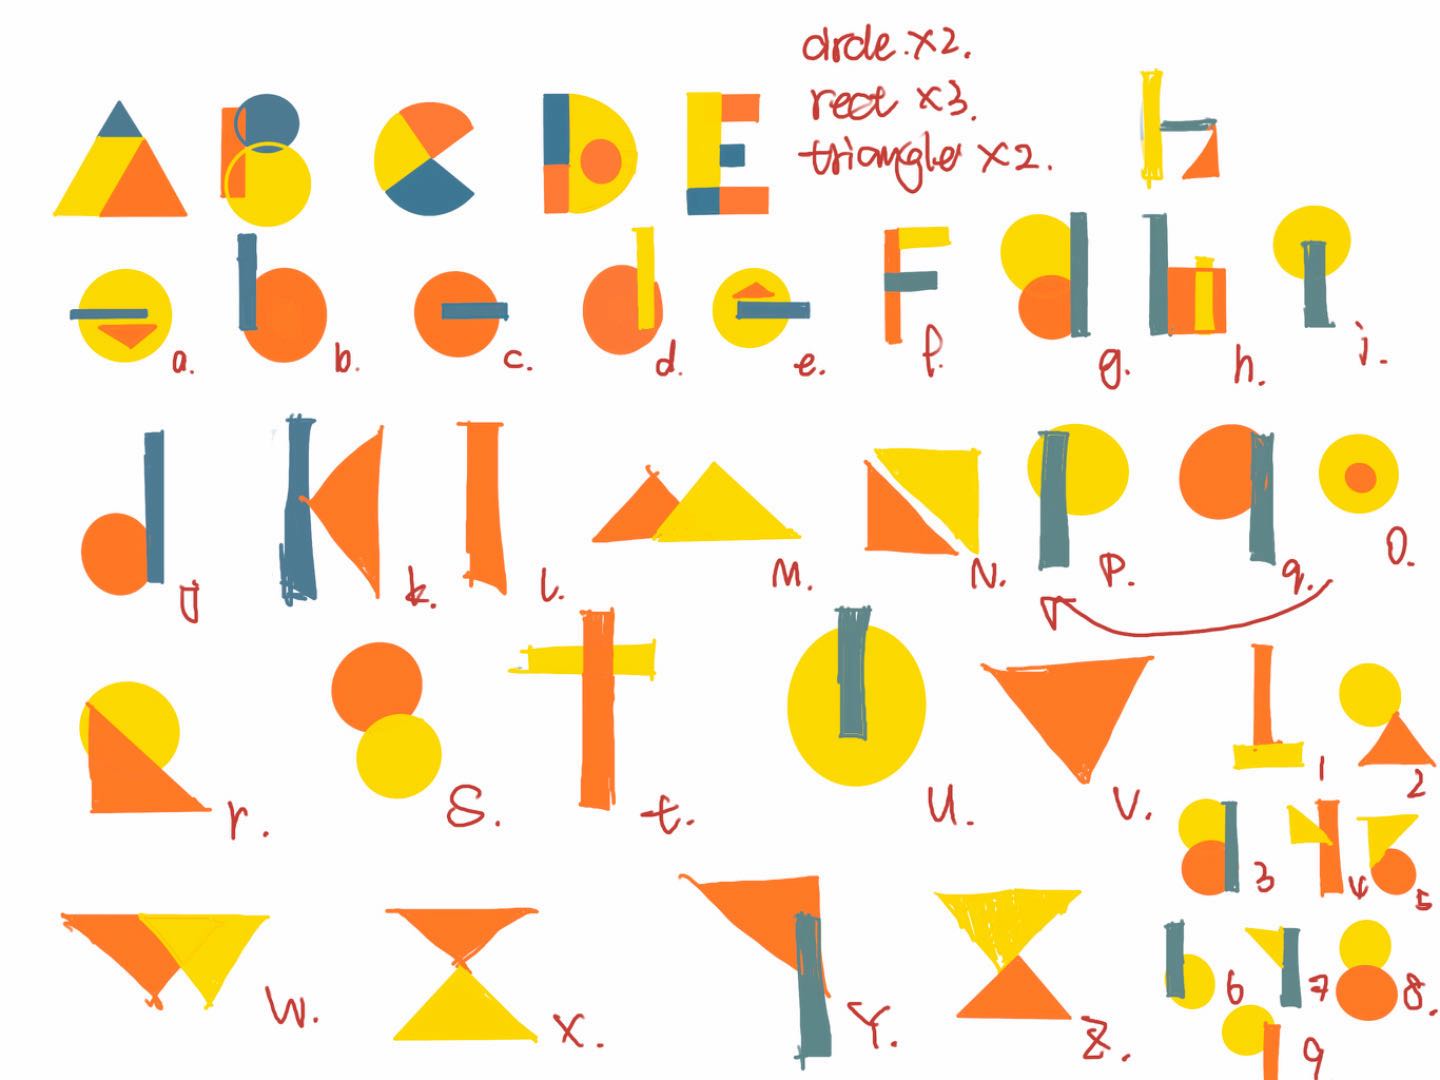 A B C D E
circle x2.
rect x3.
triangle x2.
h
a. b. c. d. e. f. g. h. i.
J k. l. M. N. P. q. O.
r. S. t. U. V. 1 2
3 4 5
W. X. Y. Z. 6 7 8.
9